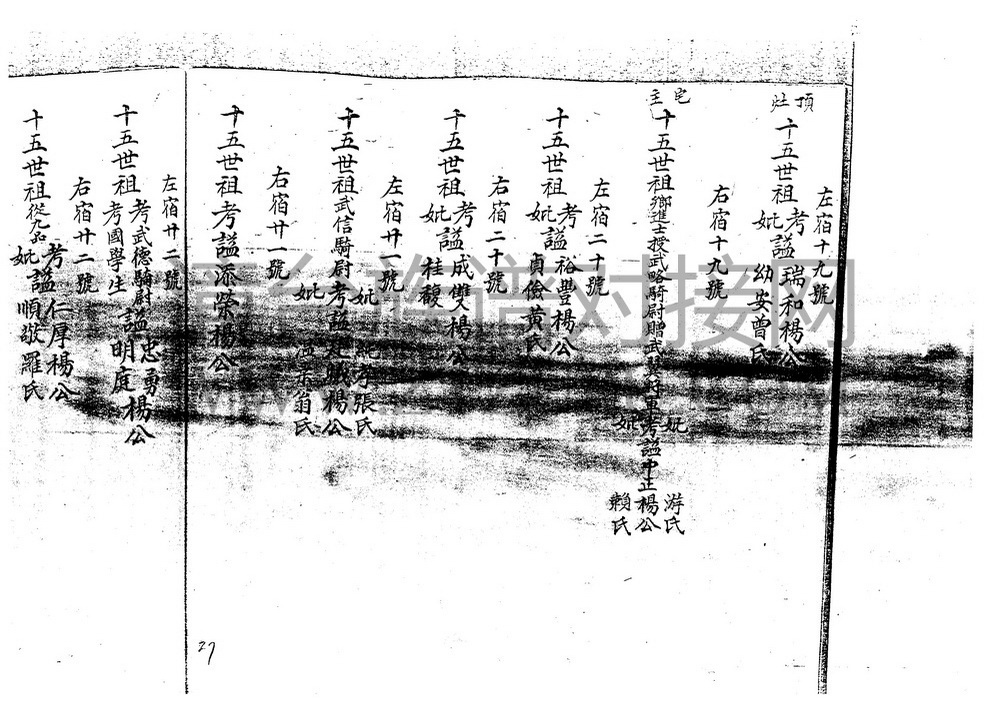 頂灶
左宿十九號
十五世祖考謚瑞和楊公
妣 幼安曾氏
右宿十九號
宅主
十五世祖鄉進士授武略騎尉贈武 考謚中正楊公
妣 游氏
妣 賴氏
左宿二十號
十五世祖考謚裕豐楊公
妣 貞儉黃氏
右宿二十號
十五世祖考謚成雙楊公
妣 桂馥
左宿廿一號
十五世祖武信騎尉考謚 楊公
妣 張氏
妣 翁氏
右宿廿一號
十五世祖考謚添榮楊公
左宿廿二號
十五世祖考武德騎尉謚忠勇楊公
考國學生 明庭
右宿廿二號
十五世祖從九品考謚仁厚楊公
妣 順敬羅氏
27